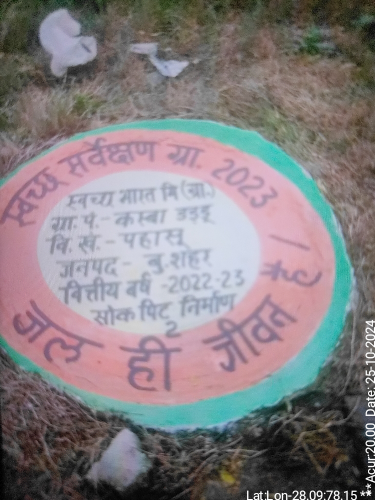 स्वच्छ सर्वेक्षण ग्रा. 2023
स्वच्छ भारत मि (ग्रा.)
ग्रा. पं.- कस्बा
वि. खं.- पहासू
जनपद- बु.शहर
वित्तीय वर्ष -2022-23
सोकपिट निर्माण
2
जल ही जीवन है
Lat:Lon-28.09:78.15 *** Acur:20.00 Date: 25-10-2024